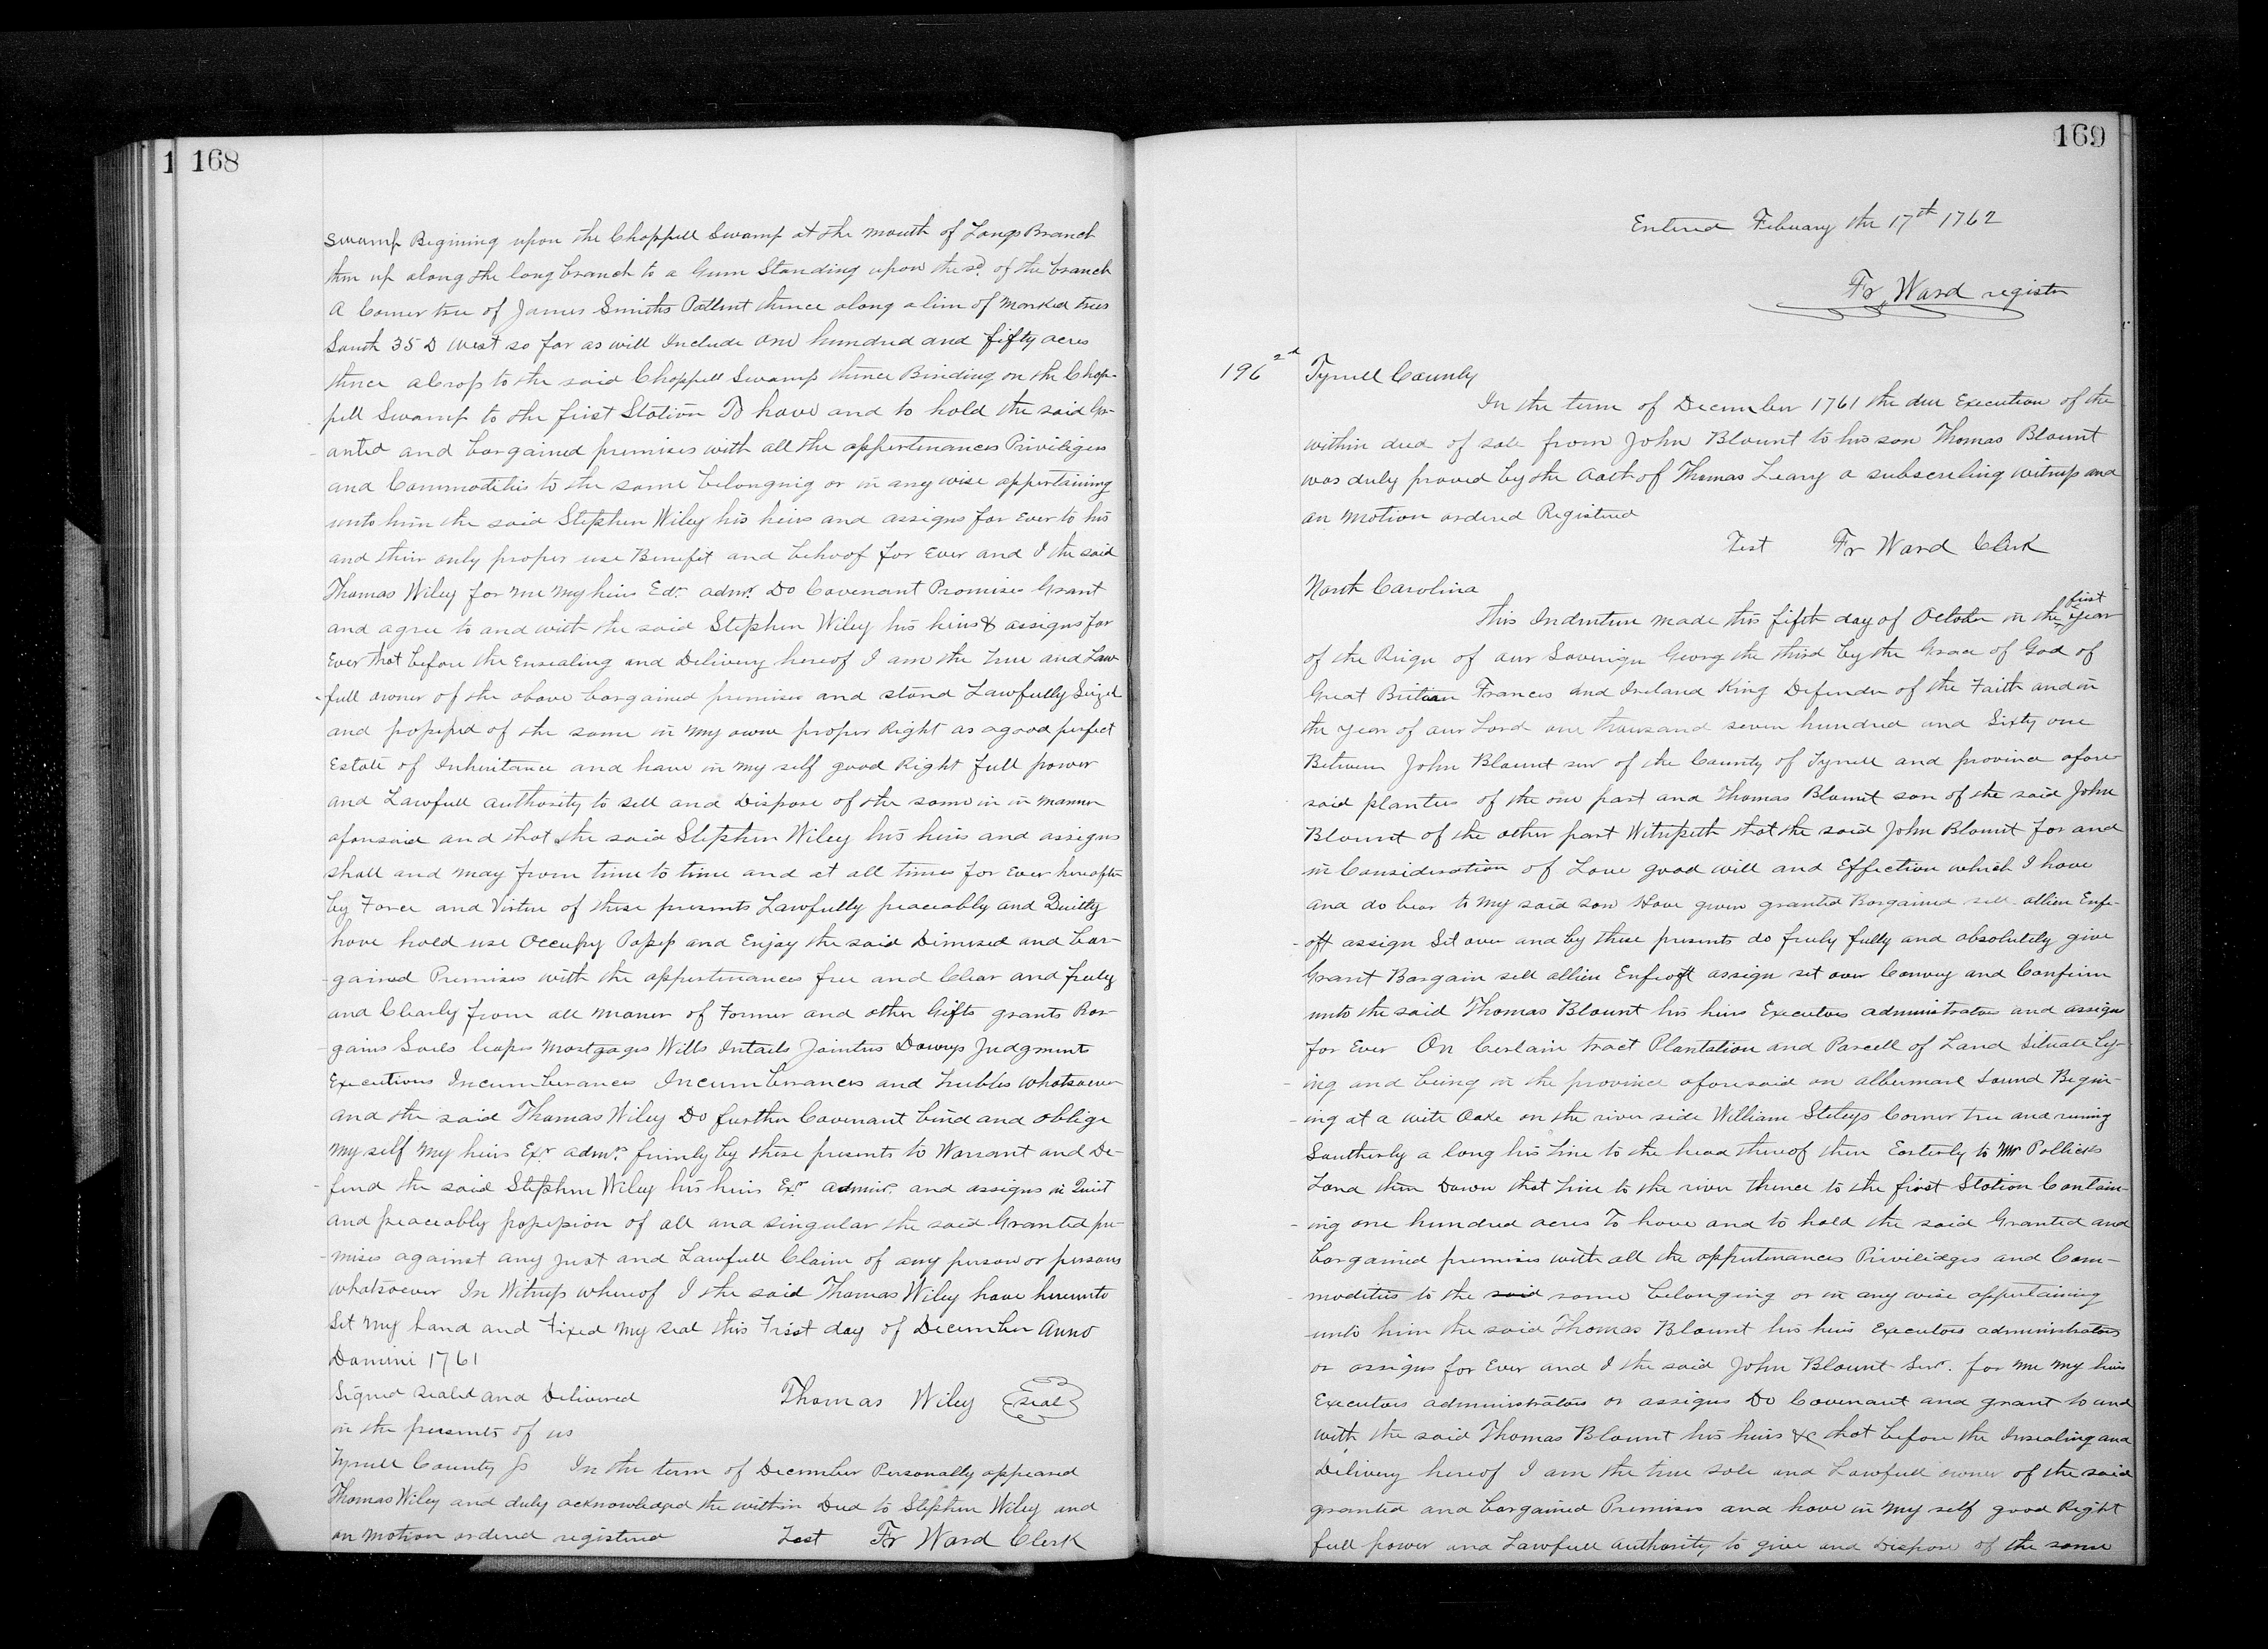 1 168
swamp Begining upon the Chappell Swamp at the mouth of Longs Branch
then up along the long branch to a Gum Standing upon the sd. of the branch
A Corner tree of James Smiths Pattent thence along a line of Marked trees
South 35 D West so far as will Include one hundred and fifty acres
thence aCross to the said Chappell Swamp thence Binding on the Chap-
pell Swamp to the first Station To have and to hold the said Gr-
anted and bargained premises with all the appertinances Priviliges
and Commodities to the same belonging or in any wise appertaining
unto him the said Stephen Wiley his heirs and assigns for Ever to his
and their only proper use Benefit and behoof for Ever and I the said
Thomas Wiley for me My heirs Edr. admr. Do Covenant Promises Grant
and agree to and with the said Stephen Wiley his heirs & assigns for
Ever that before the Ensealing and Delivery hereof I am the true and Law
full owner of the above bargained premises and stand Lawfully Seized
and possessed of the same in my owne proper Right as a good perfect
Estate of Inheritance and have in my self good Right full power
and Lawfull authority to sell and Dispose of the same in in manner
aforesaid and that the said Stephen Wiley his heirs and assigns
shall and may from time to time and at all times for Ever hereafter
by Force and Virtue of these presents Lawfully peaceably and Quitly
have hold use Occupy Possess and Enjoy the said Dimised and bar-
gained Premises with the appertinances free and Clear and freely
and Clearly from all Maner of Former and other Gifts grants Bar-
gains Sales leases Mortgages Wills Intails Jointres Dowrys Judgments
Executions Incumberances Incumberances and trubles whatsoever
and the said Thomas Wiley Do further Covenant bind and oblige
My self My heirs Exr admrs firmly by these presents to Warrant and De-
fend the said Stephen Wiley his heirs Exr. admir. and assigns in Quiet
and peaceably possession of all and singular the said Granted pre-
mises against any Just and Lawfull Claim of any person or persons
whatsoever In Witness whereof I the said Thomas Wiley have hereunto
Set my hand and Fixed my seal this First day of December Anno
Domini 1761
Signed sealed and Delivered Thomas Wiley Seal
in the presents of us
Tyrrell County Ss In the term of December Personally appeared
Thomas Wiley and duly acknowledged the within Deed to Stephen Wiley and
on Motion ordered registered Test Fr Ward Clerk
169
Entered Febuary the 17th 1762
Fr Ward register
196 2d Tyrrell County
In the term of December 1761 the due Execution of the
within deed of sale from John Blount to his son Thomas Blount
was duly proved by the Oath of Thomas Leary a subscribing witness and
on Motion ordered Registered
Test Fr Ward Clerk
North Carolina
This Indenture made this fifth day of October in the first year
of the Reign of our Soverign Georg the third by the Grace of God of
Great Britian Frances and Ireland King Defender of the Faith and in
the year of our Lord one thousand seven hundred and Sixty one
Between John Blount senr of the County of Tyrrell and province afore
said planter of the one part and Thomas Blount son of the said John
Blount of the other part Witnesseth that the said John Blount for and
in Consideration of Love good will and Effection which I have
and do bear to my said son Have given granted Bargained sell allien Enfe-
off assign Set over and by these presents do freely fully and absolutely give
Grant Bargain sell allien Enfeoft assign set over Convey and Confirm
unto the said Thomas Blount his heirs Executors administrators and assigns
for Ever On Certain tract Plantation and Parcell of Land Situate Ly-
ing and being in the province aforesaid on albermarl Sound Begin-
ing at a wite Oake on the river side William Steleys Corner tree and runing
Southerly a long his Line to the head thereof then Easterly to Mr Pollicks
Land then Down that Line to the river thence to the first Station Contain-
ing one hundred acres To have and to hold the said Granted and
bargained premises with all the appertinances Priviledges and Com-
modities to the said same belonging or in any wise appertaining
unto him the said Thomas Blount his heirs Executors administrators
or assigns for Ever and I the said John Blount Senr. for me my heirs
Executors administrators or assigns Do Covenant and grant to and
with the said Thomas Blount his heirs &c that before the Insealing and
Delivery hereof I am the true sole and Lawfull owner of the said
granted and bargained Premises and have in my self good Right
full power and Lawfull authority to give and Dispose of the same